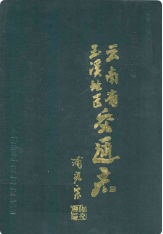 云南省
玉溪地区交通志